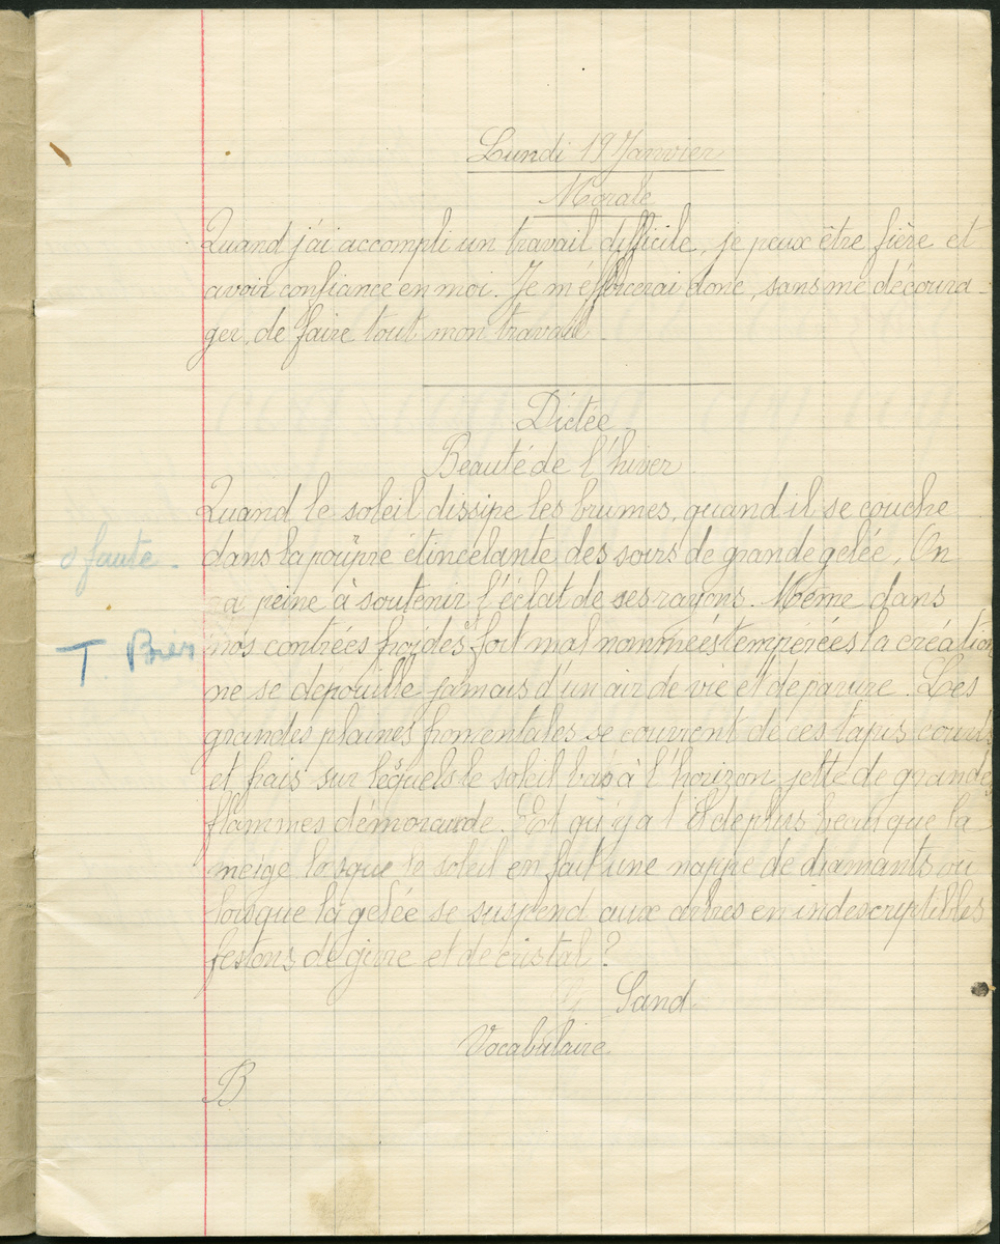 Lundi 19 Janvier
Morale
Quand j'ai accompli un travail difficile, je peux être fière et
avoir confiance en moi. Je m'éfforcerai donc, sans me découra-
ger, de faire tout mon travail.
Dictée
Beauté de l'hiver
Quand le soleil dissipe les brumes, quand il se couche
0 faute. dans la poûpre étincelante des soirs de grande gelée, On
a peine à soutenir l'éclat de ses rayons. Même dans
T Bien nos contrées froides fort mal nommées tempérées la création
ne se dépouille jamais d'un air de vie et de parure. Les
grandes plaines fromentales se couvrent de ces tapis courts
et frais sur lesquels le soleil bas à l'horizon jette de grandes
flammes d'émeraude. Et qu'y a t Il de plus beau que la
neige losque le soleil en fait une nappe de diamants ou
lorsque la gelée se suspend aux arbres en indescriptibles
festons de givre et de cristal ?
Sand
Vocabulaire
B